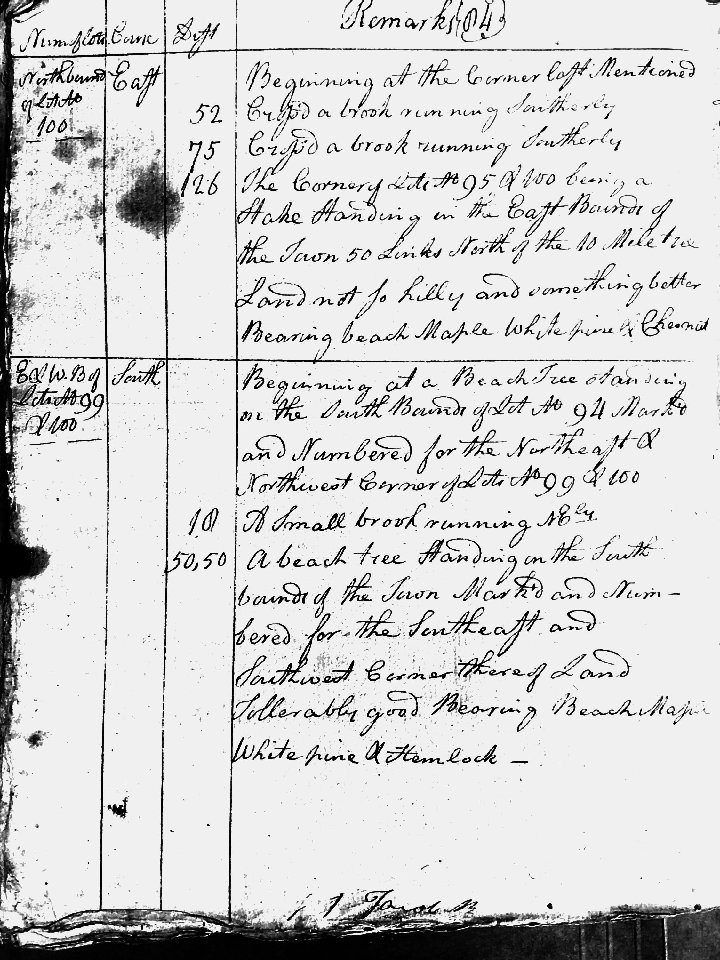 Num of lots Course Dist Remarks (84)
North bound East Beginning at the Corner last Mentioned
of Lot No
100
52 Cross'd a brook running Southerly
75 Cross'd a brook running Southerly
126 The Corner of Lots No 95 & 100 being a
Stake Standing in the East Bounds of
the Town 50 Links North of the 10 Mile tree
Land not so hilly and something better
Bearing beach Maple White pine & Chesnut
E & W. B of South Beginning at a Beach Tree standing
Lots No 99 on the South Bounds of Lot No 94 Mark'd
& 100 and Numbered for the Northeast &
Northwest Corner of Lots No 99 & 100
18 A Small brook running NEly
50,50 A beach tree Standing on the South
bounds of the Town Mark'd and Num-
bered for the Southeast and
Southwest Corner thereof Land
Tollerably good Bearing Beach Maple
White pine & Hemlock -